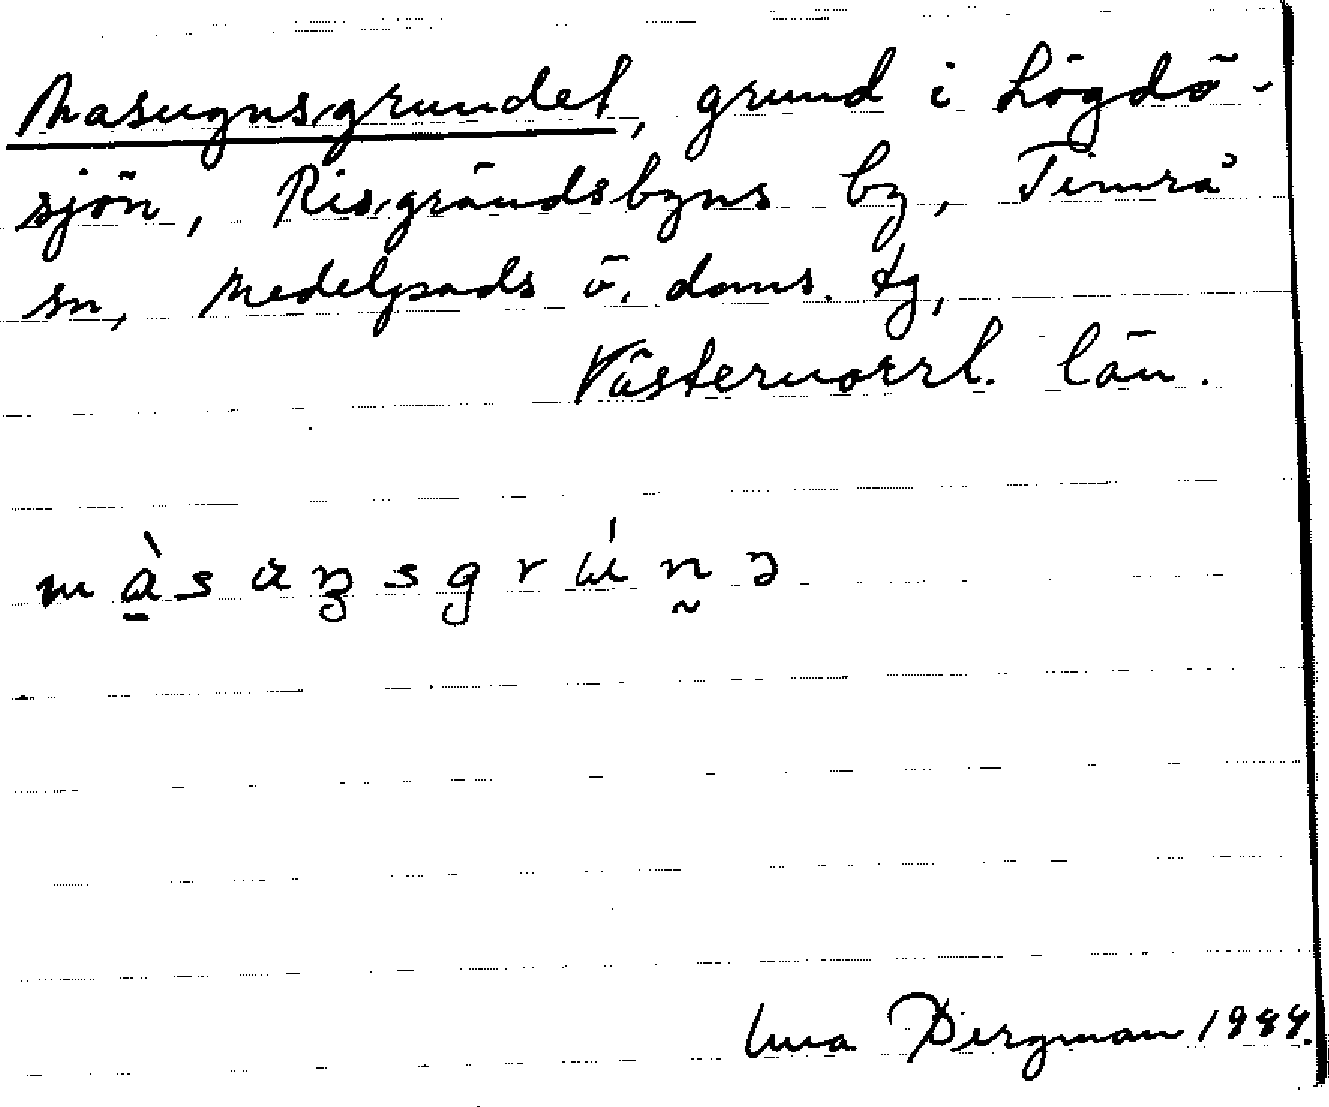 Masugnsgrundet, grund i Lögdö-
sjön, Risgrändsbyns by, Timrå
sn, Medelpads ö. doms. tg,
Västernorrl. län.
Bergman